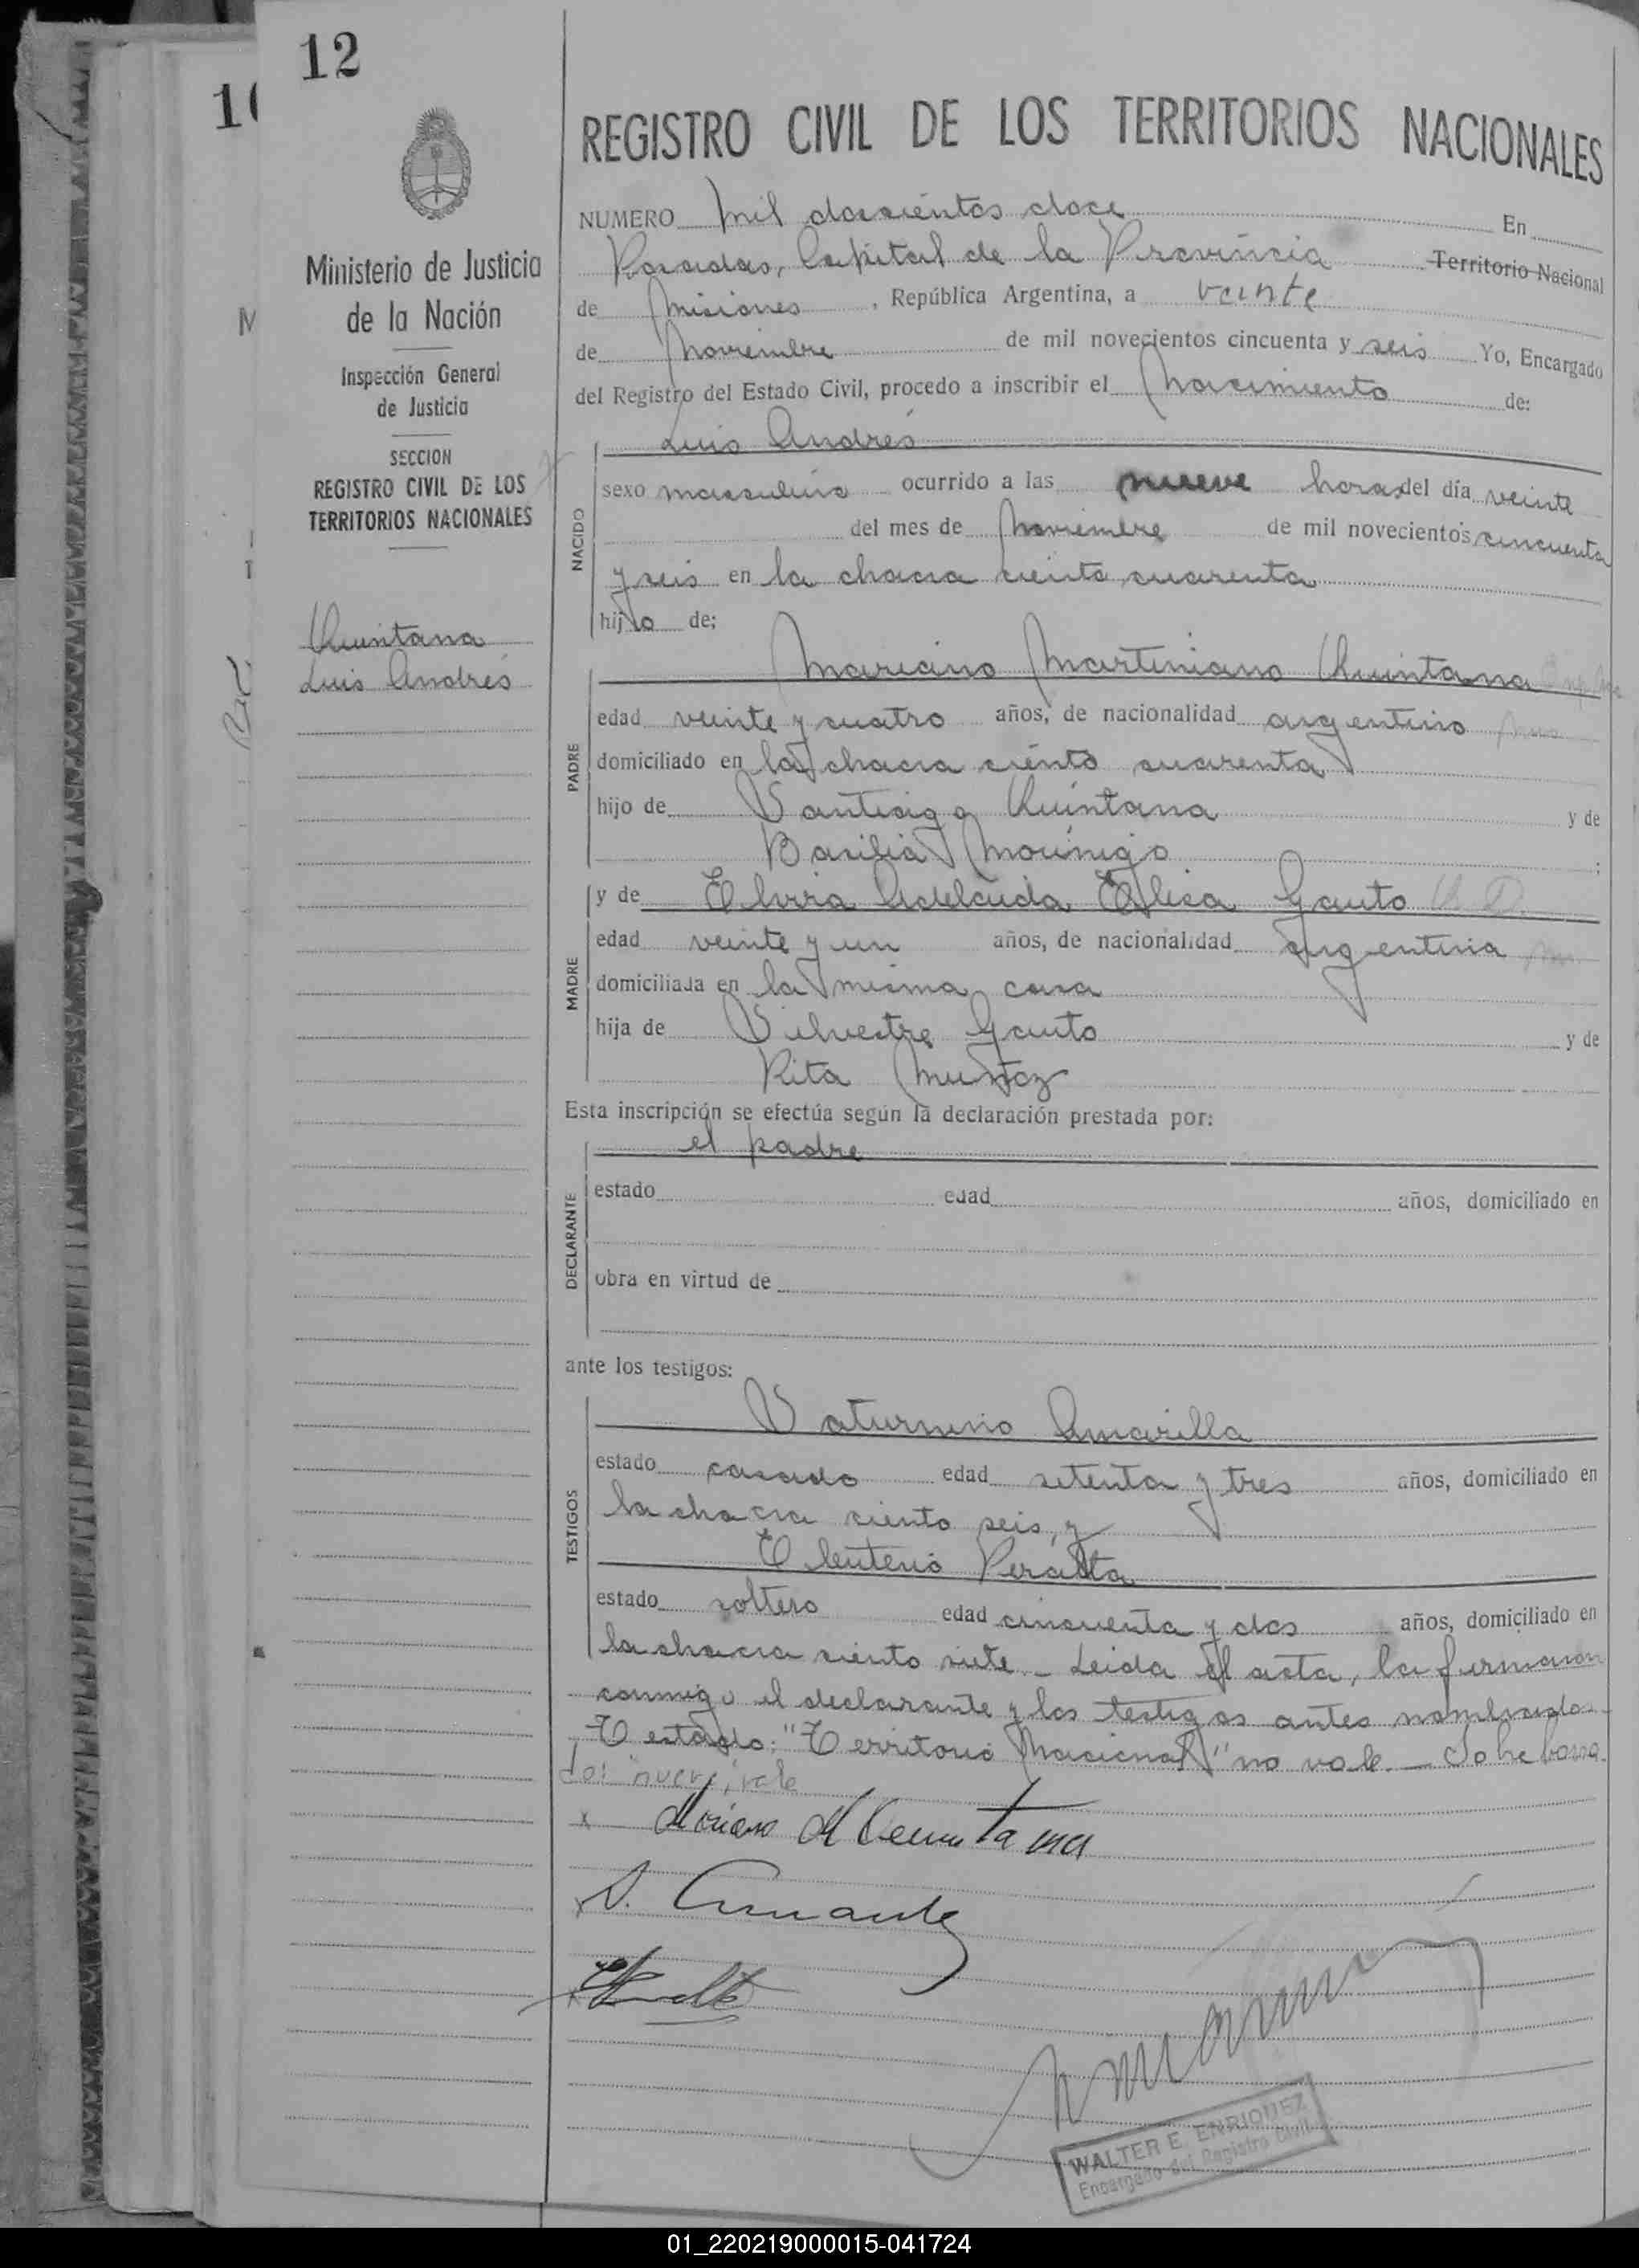 12
10
REGISTRO CIVIL DE LOS TERRITORIOS NACIONALES
Ministerio de Justicia
de la Nación
Inspección General
de Justicia
SECCION
REGISTRO CIVIL DE LOS
TERRITORIOS NACIONALES
Quintana
Luis Andrés
NUMERO mil doscientos doce En
Posadas, Capital de la Provincia Territorio Nacional
de Misiones, República Argentina, a veinte
de Noviembre de mil novecientos cincuenta y seis Yo, Encargado
del Registro del Estado Civil, procedo a inscribir el Nacimiento de:
NACIDO
Luis Andrés
sexo masculino ocurrido a las nueve horas del día veinte
del mes de Noviembre de mil novecientos cincuenta
y seis en la chacra ciento cuarenta
hijo de;
PADRE
Mariano Martiniano Quintana
edad veinte y cuatro años, de nacionalidad argentino
domiciliado en la chacra ciento cuarenta
hijo de Santiago Quintana y de
Basilia Mourigo
MADRE
y de Elvira Adelaida Elisa Gauto
edad veinte y un años, de nacionalidad argentina
domiciliada en la misma casa
hija de Silvestre Gauto y de
Rita Muñoz
Esta inscripción se efectúa según la declaración prestada por:
DECLARANTE
el padre
estado edad años, domiciliado en
obra en virtud de
ante los testigos:
TESTIGOS
Saturnino Amarilla
estado casado edad setenta y tres años, domiciliado en
la chacra ciento seis, y
Eleuterio Peralta
estado soltero edad cincuenta y dos años, domiciliado en
la chacra ciento siete - Leida el acta, la firmaron
conmigo el declarante y los testigos antes nombrados-
Testado: "Territorio Nacional" no vale. - Sobre borra-
do: nueve, vale
Mariano M Quintana
WALTER E. ENRIQUEZ
Encargado del Registro Civil
01_220219000015-041724